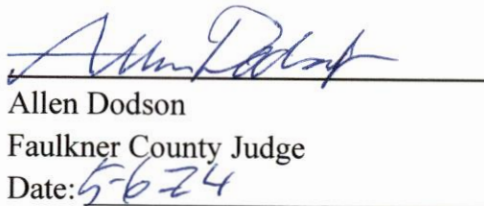 Allen Dodson
Allen Dodson
Faulkner County Judge
Date: 5-6-24